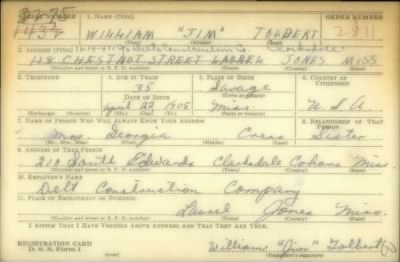 SERIAL NUMBER 1. NAME (Print) ORDER NUMBER
WILLIAM "JIM" TOLBERT 2811
(First) (Middle) (Last)
2. ADDRESS (Print)
118 CHESTNUT STREET LAUREL JONES MISS
(Number and street or R. F. D. number) (Town) (County) (State)
3. TELEPHONE 4. AGE IN YEARS 5. PLACE OF BIRTH 6. COUNTRY OF CITIZENSHIP
35 Savage
DATE OF BIRTH (Town or county)
April 22 1905 Miss. U.S.A
(Exchange) (Number) (Mo.) (Day) (Yr.) (State or country)
7. NAME OF PERSON WHO WILL ALWAYS KNOW YOUR ADDRESS 8. RELATIONSHIP OF THAT PERSON
Mrs. Georgia Sister
(Mr., Mrs., Miss) (First) (Middle) (Last)
9. ADDRESS OF THAT PERSON
210 South Edwards Clarksdale Cohoma Miss
(Number and street or R. F. D. number) (Town) (County) (State)
10. EMPLOYER'S NAME
Construction Company
11. PLACE OF EMPLOYMENT OR BUSINESS
Laurel Jones Miss.
(Number and street or R. F. D. number) (Town) (County) (State)
I AFFIRM THAT I HAVE VERIFIED ABOVE ANSWERS AND THAT THEY ARE TRUE.
REGISTRATION CARD
D. S. S. Form 1
William "Jim" Tolbert
(Registrant's signature)